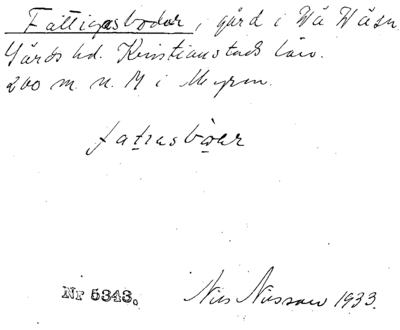 Fattigasbodar, i gård i Vä Wäsn
Gärds hd. Kristianstads län.
200 m. n. M i Myren.
fatiasboar
Nr 5343. Nils Nilsson 1933.